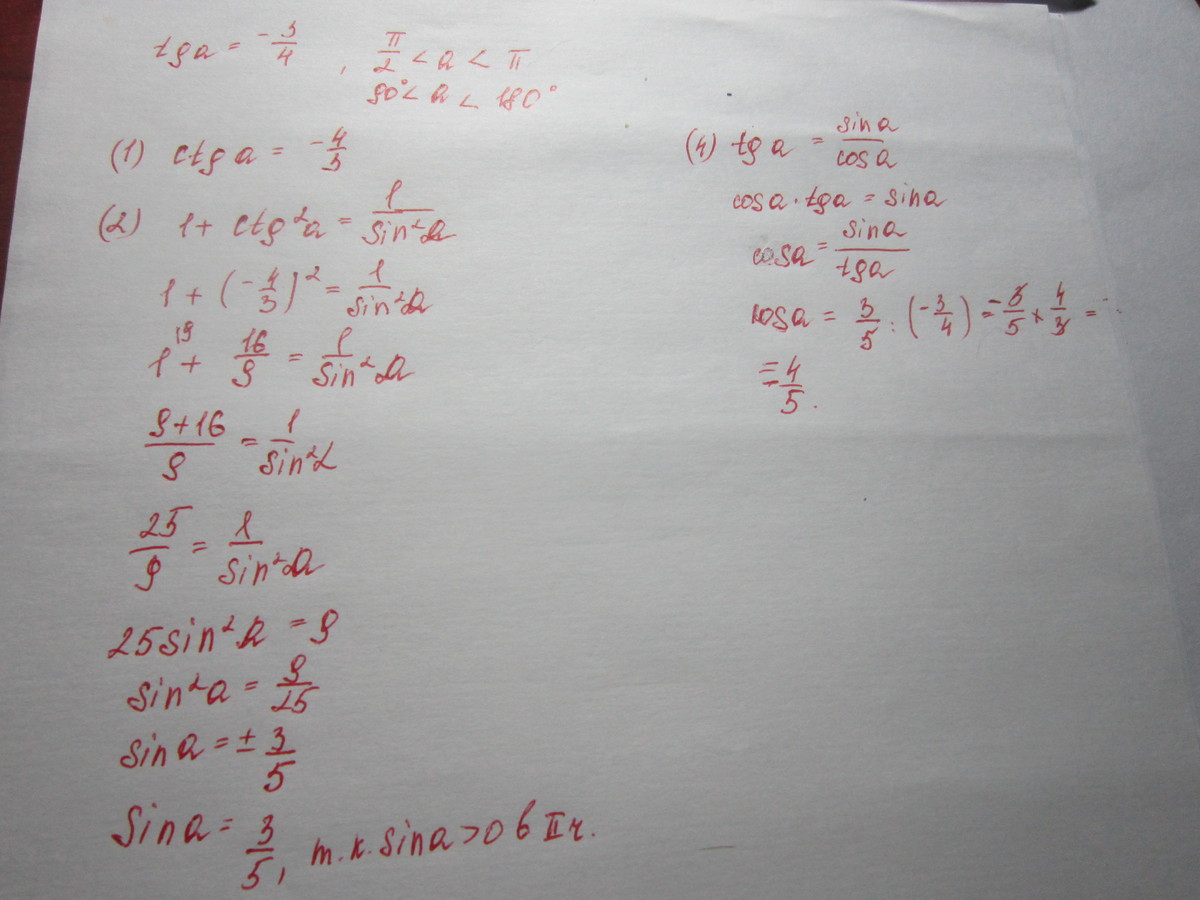 tg a = -3/4 , π/2 < a < π
90° < a < 180°
(1) ctg a = -4/3
(2) 1 + ctg²a = 1/sin²a
1 + (-4/3)² = 1/sin²a
1\9 + 16/9 = 1/sin²a
9+16/9 = 1/sin²α
25/9 = 1/sin²a
25sin²a = 9
sin²a = 9/25
sin a = ± 3/5
Sin a = 3/5, т.к. sin a > 0 в II ч.
(4) tg a = sin a/cos a
cos a · tg a = sin a
cos a = sin a/tg a
cos a = 3/5 : (-3/4) = -3/5 × 4/3 =
= -4/5.